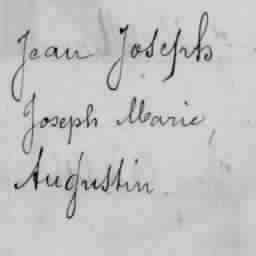 Jean Joseph
Joseph Marie,
Augustin.